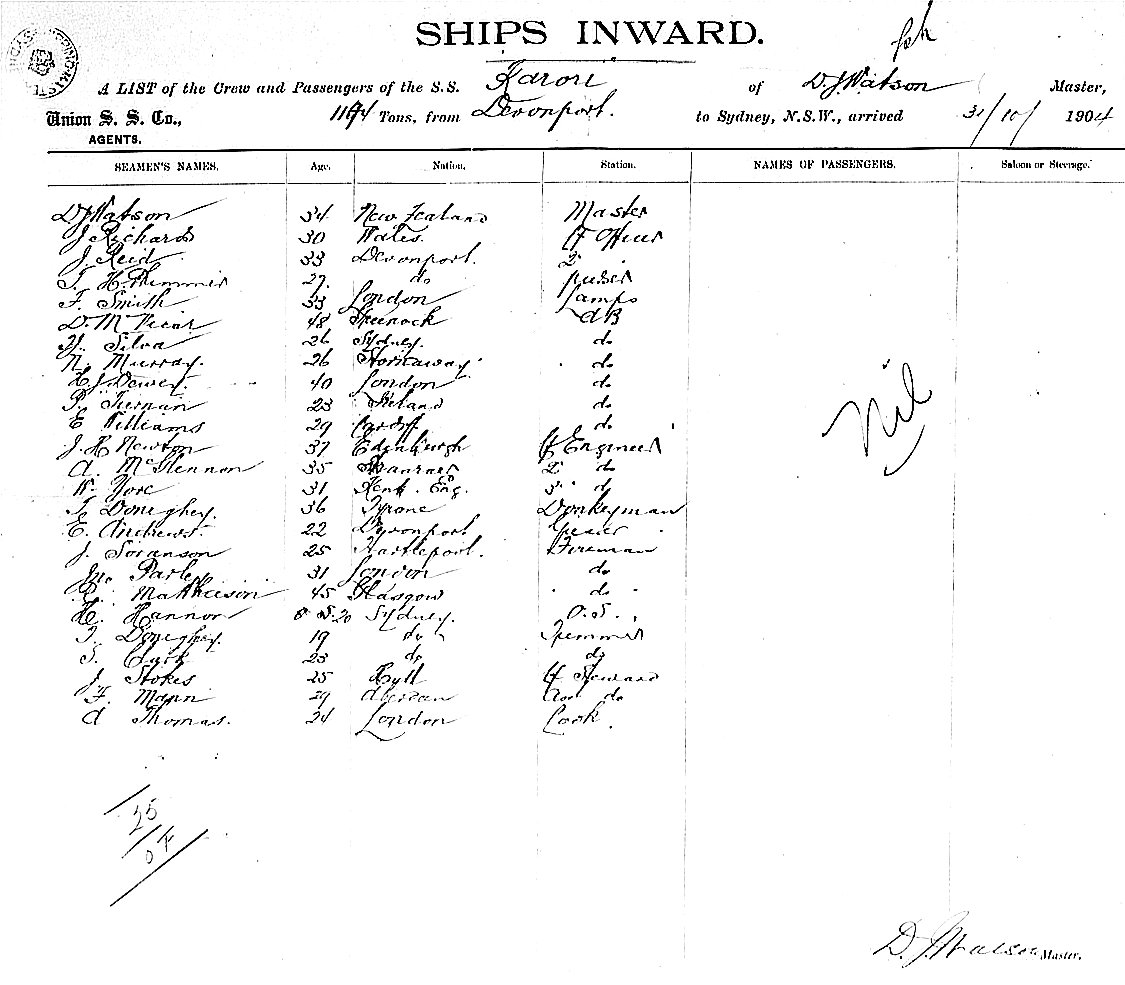 SHIPS INWARD.
A LIST of the Crew and Passengers of the S.S. Karori of D. J. Watson Master,
Union S. S. Co., Tons, from Devonport. to Sydney, N.S.W., arrived 31/10/ 1904
AGENTS.
SEAMEN'S NAMES. Age. Nation. Station. NAMES OF PASSENGERS. Saloon or Steerage.
D J Watson 34 New Zealand Master
J Richards 30 Wales. Cf Officer
J. Reid 33 Devonport. 2
T. H. 27. do purser
F. Smith 33 London Lamps
D. McVicar 48 Greenock AB
Silva 26 Sydney. do
N. Murray. 26 Stornaway do
H J Dewey. 40 London do
P. Tiernan 23 Ireland do
E Williams 29 Cardiff do
J. H. Newton 37 Edenburgh Cf Engineer
A. McLennon 35 Stanraer 2 do
W. Yore 31 Kent. Eng. 3 do
T. Doneghey. 36 Tyrone Donkeyman
E. Andrews. 22 Devonport Greaser
J. Soranson 25 Hartlepool. Fireman
Jno. Parley 31 London do
Mathieson 45 Glasgow do
H. Hannon O S. 20 Sydney. O.S.
T. Doneghey. 19 do Trimmer
S. Clark 23 do do
J. Stokes 25 Ryll Cf Steward
F. Mann 29 Aberdan Asst do
A Thomas. 24 London Cook.
Nil
25
D. J. Watson Master.